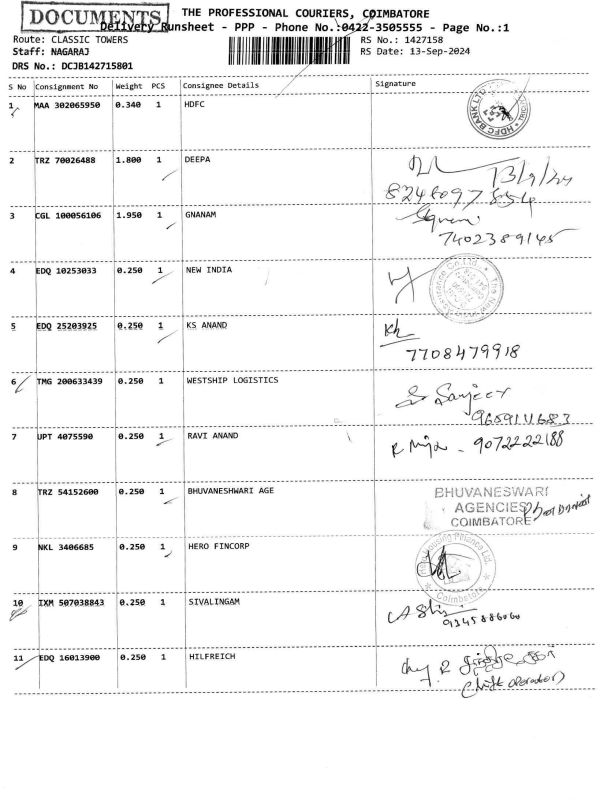 DOCUMENTS
THE PROFESSIONAL COURIERS, COIMBATORE
Delivery Runsheet - PPP - Phone No.:0422-3505555 - Page No.:1
Route: CLASSIC TOWERS
RS No.: 1427158
Staff: NAGARAJ
RS Date: 13-Sep-2024
DRS No.: DCJB142715801
S No Consignment No Weight PCS Consignee Details Signature
1 MAA 302065950 0.340 1 HDFC
HDFC BANK LTD
2 TRZ 70026488 1.800 1 DEEPA
13/9/24
8248097854
3 CGL 100056106 1.950 1 GNANAM
7402389145
4 EDQ 10253033 0.250 1 NEW INDIA
5 EDQ 25203925 0.250 1 KS ANAND
7708479918
6 TMG 200633439 0.250 1 WESTSHIP LOGISTICS
Sanjeev
7 UPT 4075590 0.250 1 RAVI ANAND
9072222188
8 TRZ 54152600 0.250 1 BHUVANESHWARI AGE
BHUVANESWARI
AGENCIES
COIMBATORE
9 NKL 3406685 0.250 1 HERO FINCORP
Coimbatore
10 IXM 507038843 0.250 1 SIVALINGAM
9345886060
11 EDQ 16013900 0.250 1 HILFREICH